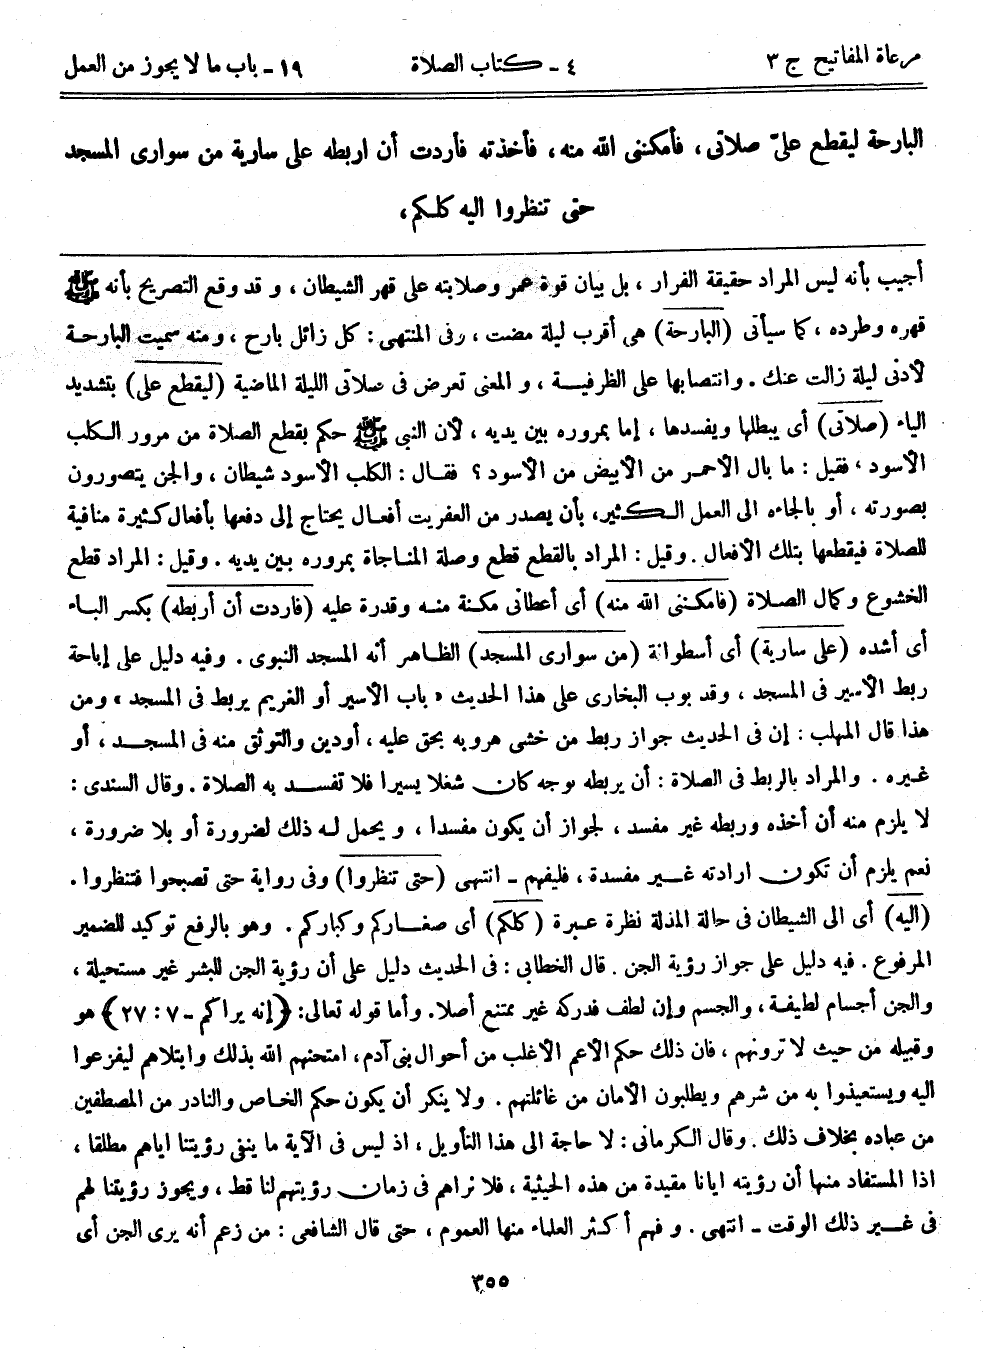 مرعاة المفاتيح ج ٣
٤ - كتاب الصلاة
١٩ - باب ما لا يجوز من العمل
البارحة ليقطع علىّ صلاتى، فأمكننى الله منه، فأخذته فأردت أن اربطه على سارية من سوارى المسجد
حتى تنظروا اليه كلكم،
أجيب بأنه ليس المراد حقيقة الفرار، بل بيان قوة عمر وصلابته على قهر الشيطان، وقد وقع التصريح بأنه ﷺ
قهره وطرده، كما سيأتى (البارحة) هى أقرب ليلة مضت، وفى المنتهى: كل زائل بارح، ومنه سميت البارحة
لأدنى ليلة زالت عنك. وانتصابها على الظرفية، والمعنى تعرض فى صلاتى الليلة الماضية (ليقطع على) بتشديد
الياء (صلاتى) أى يبطلها ويفسدها، إما بمروره بين يديه، لأن النبى ﷺ حكم بقطع الصلاة من مرور الكلب
الأسود، فقيل: ما بال الأحمر من الأبيض من الأسود؟ فقال: الكلب الأسود شيطان، والجن يتصورون
بصورته، أو بالجاءه الى العمل الكثير، بأن يصدر من العفريت أفعال يحتاج إلى دفعها بأفعال كثيرة منافية
للصلاة فيقطعها بتلك الأفعال. وقيل: المراد بالقطع قطع وصلة المناجاة بمروره بين يديه. وقيل: المراد قطع
الخشوع وكمال الصلاة (فامكننى الله منه) أى أعطانى مكنة منه وقدرة عليه (فاردت أن أربطه) بكسر الباء
أى أشده (على سارية) أى أسطوانة (من سوارى المسجد) الظاهر أنه المسجد النبوى. وفيه دليل على إباحة
ربط الأسير فى المسجد، وقد بوب البخارى على هذا الحديث «باب الأسير أو الغريم يربط فى المسجد» ومن
هذا قال المهلب: إن فى الحديث جواز ربط من خشى هروبه بحق عليه، أودين والتوثق منه فى المسجد، أو
غيره. والمراد بالربط فى الصلاة: أن يربطه بوجه كان شغلا يسيرا فلا تفسد به الصلاة. وقال السندى:
لا يلزم منه أن أخذه وربطه غير مفسد، لجواز أن يكون مفسدا، ويحمل له ذلك لضرورة أو بلا ضرورة،
نعم يلزم أن تكون ارادته غير مفسدة، فليفهم - انتهى (حتى تنظروا) وفى رواية حتى تصبحوا فتنظروا.
(اليه) أى الى الشيطان فى حالة المذلة نظرة عبرة (كلكم) أى صغاركم وكباركم. وهو بالرفع توكيد للضمير
المرفوع. فيه دليل على جواز رؤية الجن. قال الخطابى: فى الحديث دليل على أن رؤية الجن للبشر غير مستحيلة،
والجن أجسام لطيفة، والجسم وإن لطف فدركه غير ممتنع أصلا. وأما قوله تعالى: ﴿إنه يراكم - ٧: ٢٧﴾ هو
وقبيله من حيث لا ترونهم، فان ذلك حكم الأعم الأغلب من أحوال بنى آدم، امتحنهم الله بذلك وابتلاهم ليفزعوا
اليه ويستعيذوا به من شرهم ويطلبون الأمان من غائلتهم. ولا ينكر أن يكون حكم الخاص والنادر من المصطفين
من عباده بخلاف ذلك. وقال الكرمانى: لا حاجة الى هذا التأويل، اذ ليس فى الآية ما ينفى رؤيتنا اياهم مطلقا،
اذا المستفاد منها أن رؤيته ايانا مقيدة من هذه الحيثية، فلا نراهم فى زمان رؤيتهم لنا قط، ويجوز رؤيتنا لهم
فى غير ذلك الوقت - انتهى. وفهم أكثر العلماء منها العموم، حتى قال الشافعى: من زعم أنه يرى الجن أى
٣٥٥